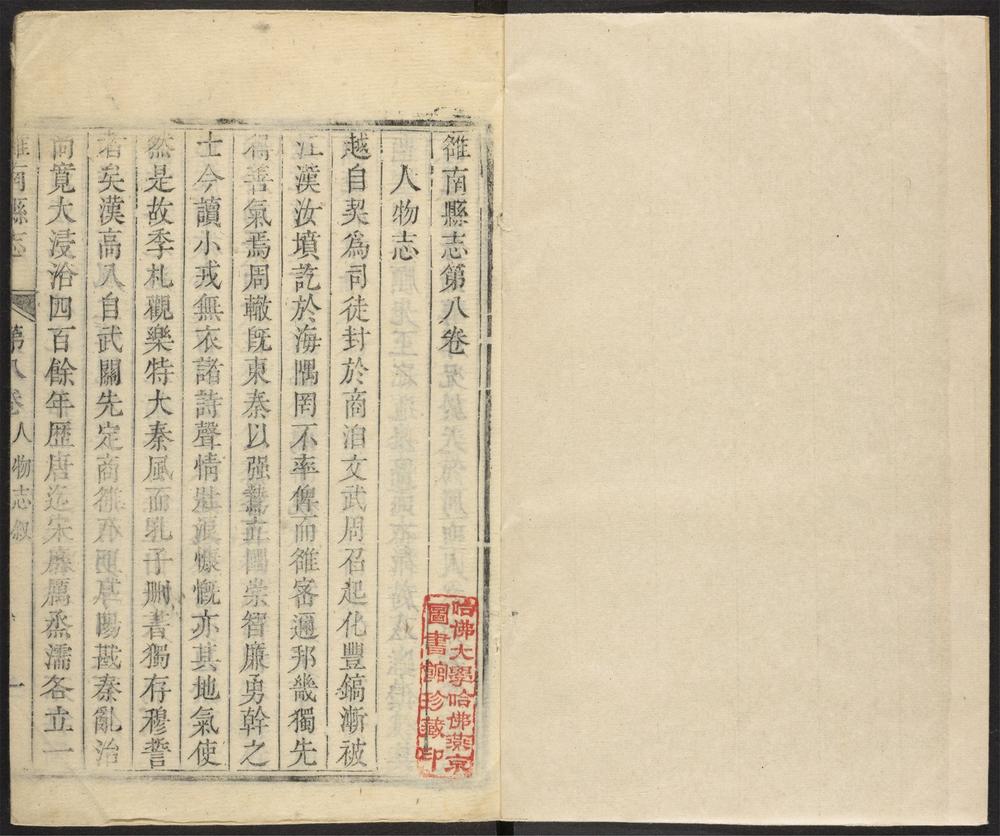 雒南縣志第八卷
人物志
越自契為司徒封於商洎文武周召起化豐鎬漸被
江漢汝墳訖於海隅罔不率俾而雒密邇邦畿獨先
得善氣焉周轍既東秦以强鷙立國崇智廉勇幹之
士今讀小戎無衣諸詩聲情壯浪慷慨亦其地氣使
然是故季札觀樂特大秦風而孔子刪書獨存穆誓
者矣漢高入自武關先定商雒
陽戡秦亂治
尚寬大浸浴四百餘年歷唐迄宋
厲烝濡各立一
雒南縣志
第八卷
人物志叙
一
哈佛大學哈佛燕京
圖書館珍藏印